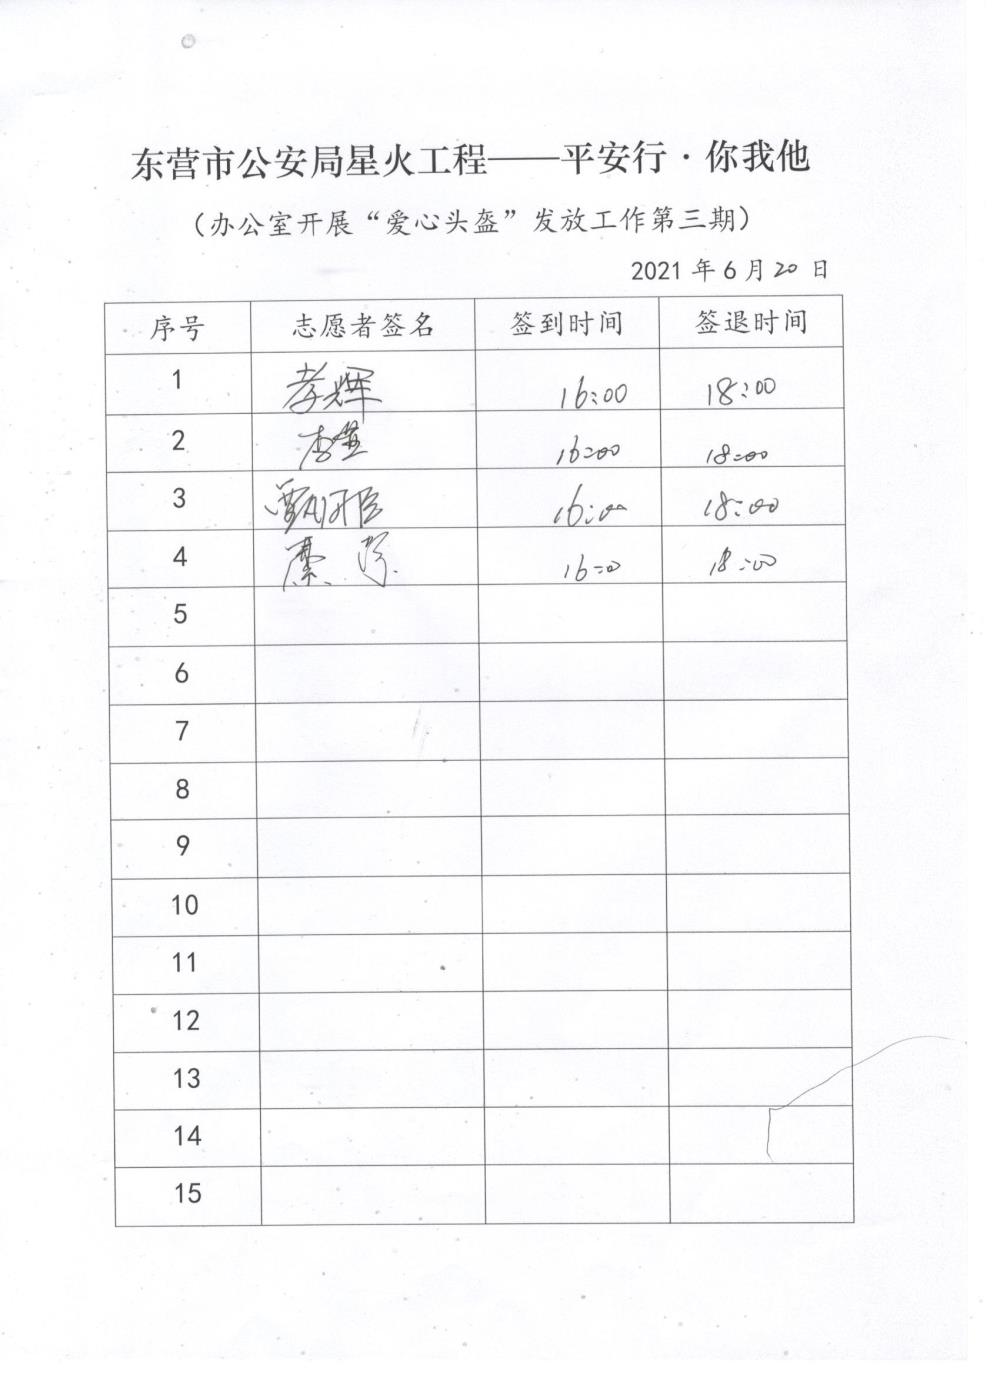 东营市公安局星火工程——平安行·你我他
（办公室开展“爱心头盔”发放工作第三期）
2021 年 6 月 20 日
序号 志愿者签名 签到时间 签退时间
1 李辉 16:00 18:00
2 16:00 18:00
3 16:00 18:00
4 16:00 18:00
5
6
7
8
9
10
11
12
13
14
15